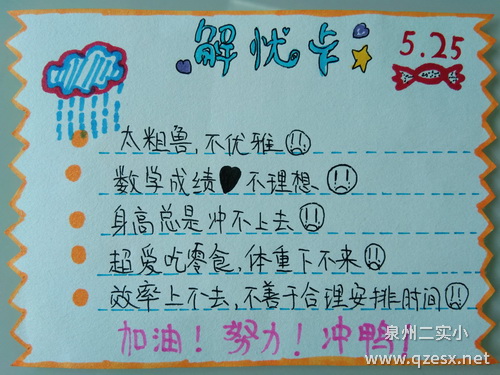 解忧卡
5.25
太粗鲁,不优雅
数学成绩不理想、
身高总是冲不上去
超爱吃零食,体重下不来
效率上不去,不善于合理安排时间
加油!努力!冲鸭!
泉州二实小
www.qzesx.net